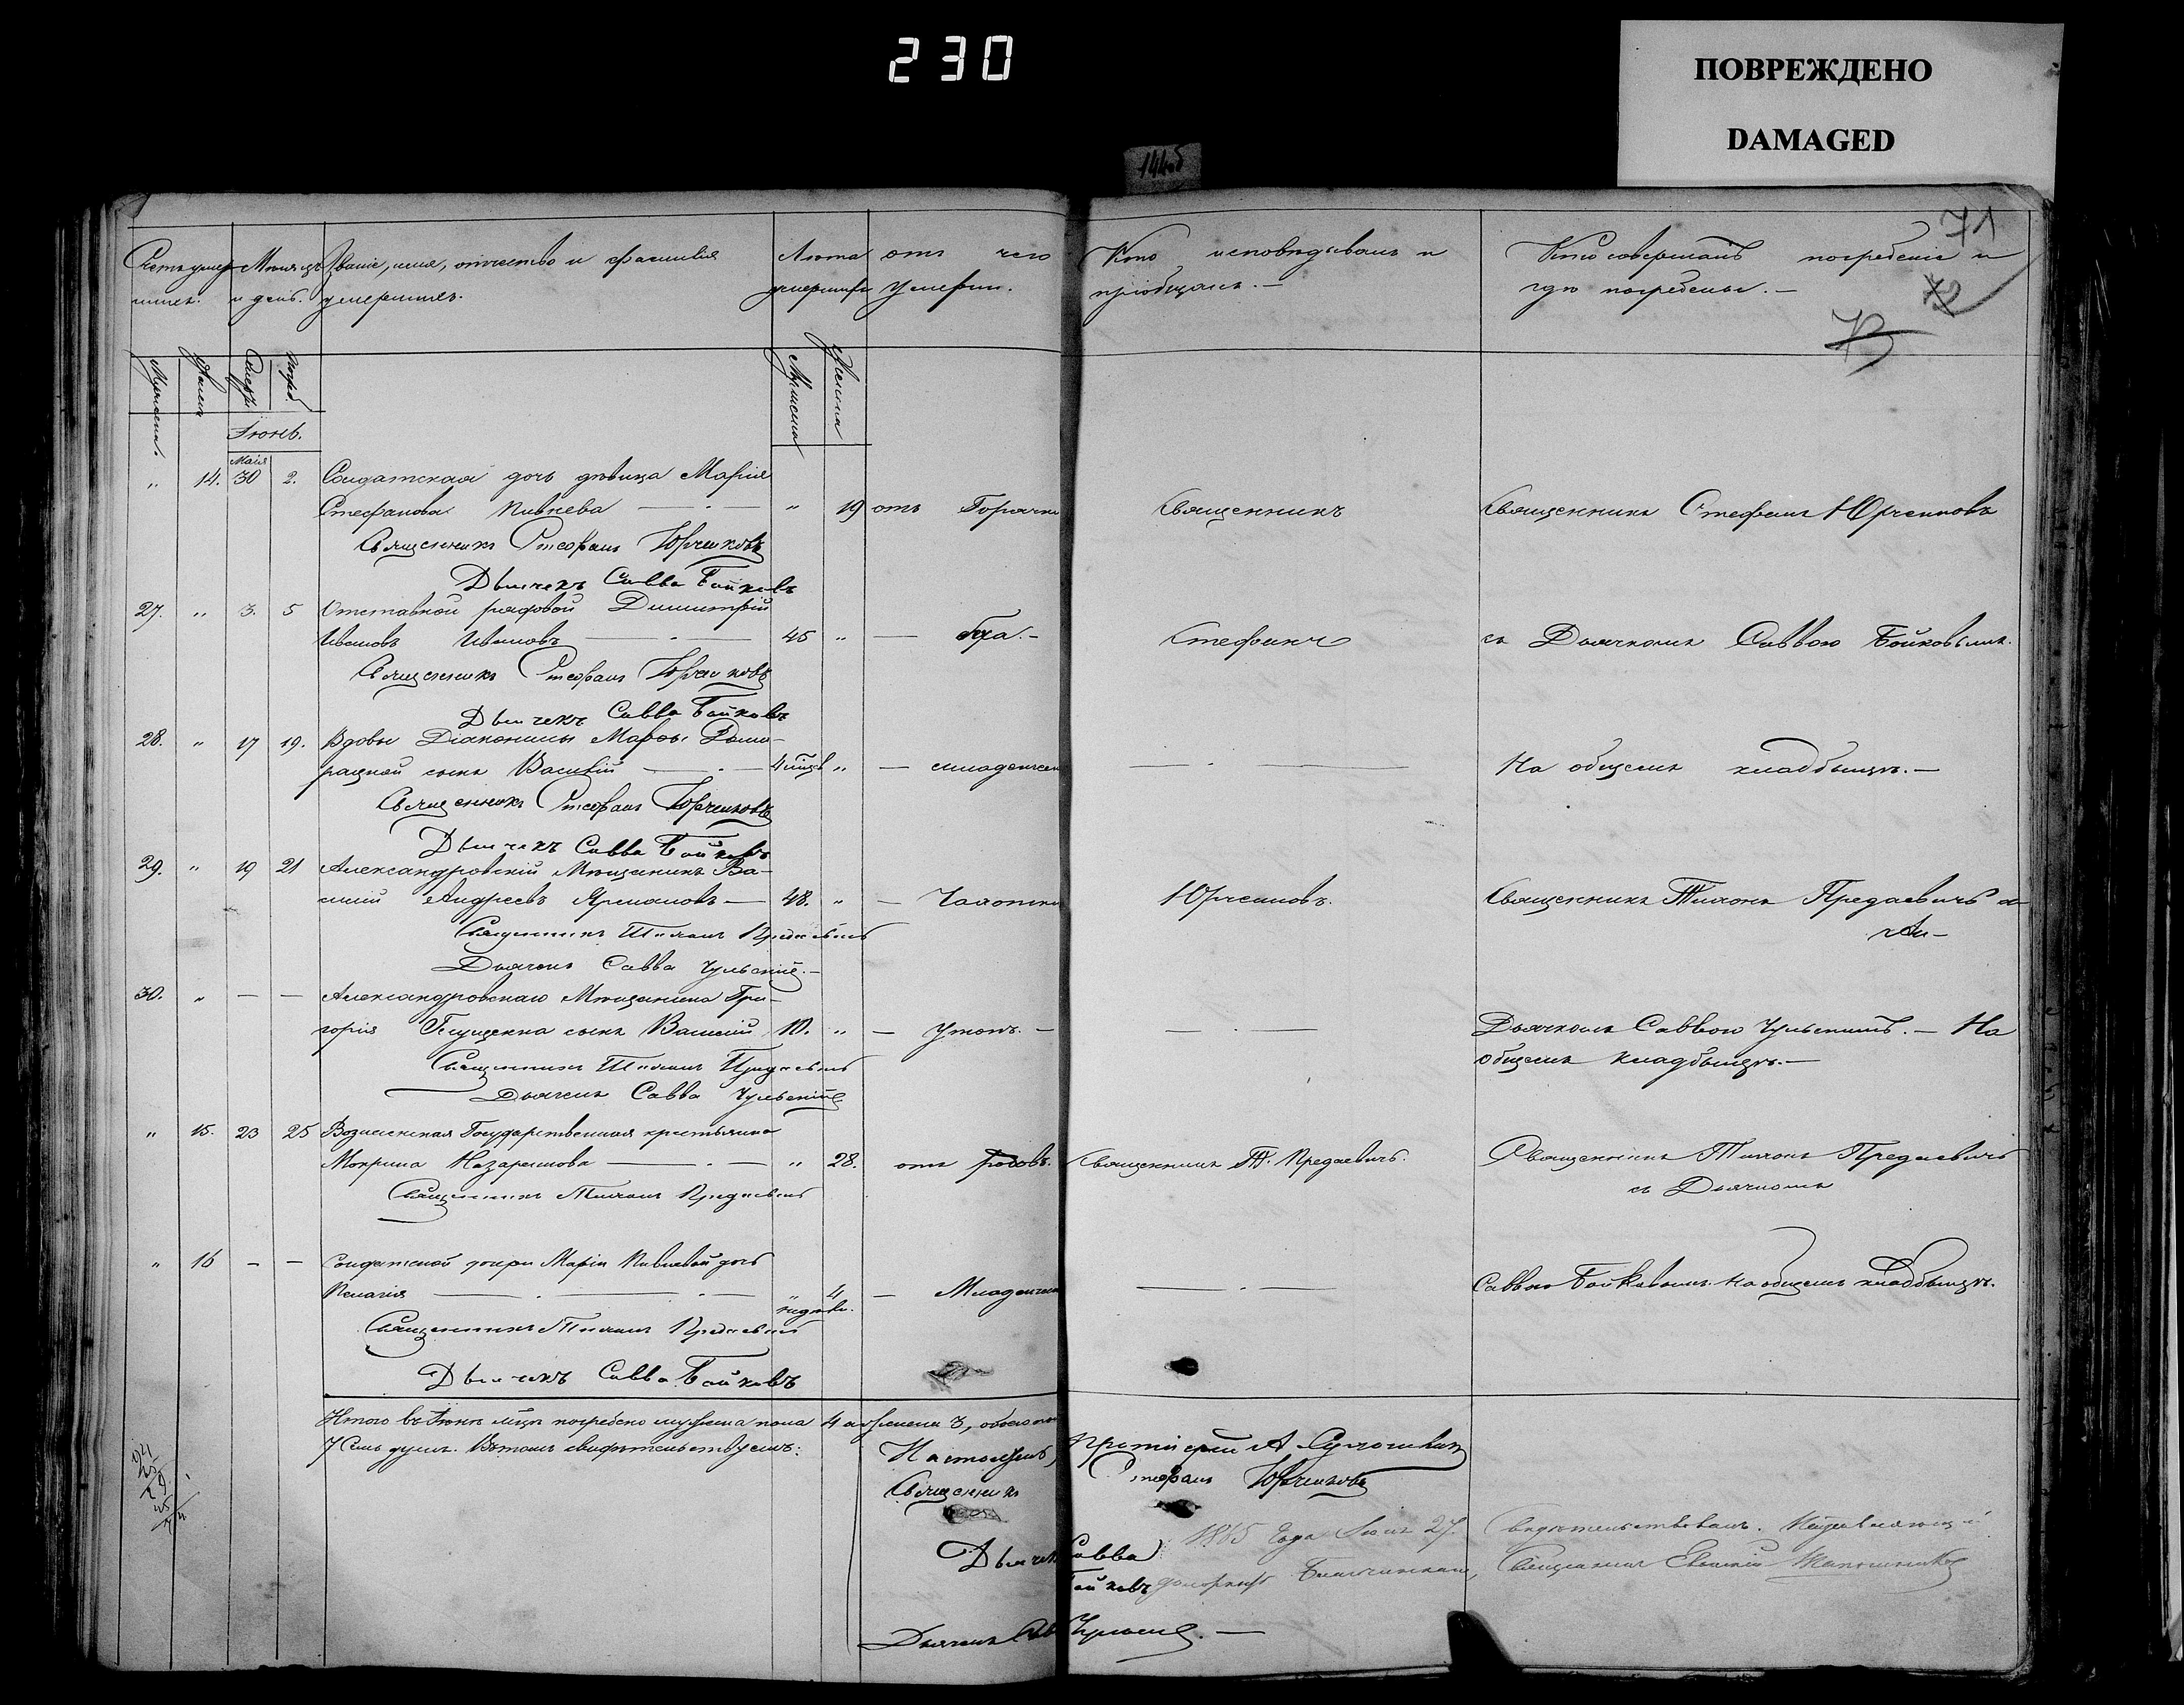 230
ПОВРЕЖДЕНО
DAMAGED
144об
71
72
73
Счетъ умер- Мѣсяцъ Званіе, имя, отчество и фамилія Лѣта отъ чего Кто исповѣдывалъ и Кто совершалъ погребеніе и
шихъ. и день. умершихъ. умершихъ умерли. пріобщалъ. — гдѣ погребены. —
Мужеска. Женска Смерт. Погреб. Мужеска Женска
Іюнь.
Маія
„ 14. 30 2. Солдатская дочь дѣвица Марія
Стефанова Пивнева — „ 19 отъ Горячки Священникъ Священникъ Стефанъ Юрченковъ
Священникъ Стефанъ Юрченковъ
Дьячекъ Савва Бойковъ
27. „ 3. 5 Отставной рядовой Димитрій
Ивановъ Ивановъ — 45 „ — Стефанъ съ Дьячкомъ Саввою Бойковымъ.
Священникъ Стефанъ Юрченковъ
Дьячекъ Савва Бойковъ
28. „ 17 19. Вдовы Діаконицы Марфы
сынъ Василій — 4 мѣсц. „ — младенческ На общемъ кладбыщѣ. —
Священникъ Стефанъ Юрченковъ
Дьячекъ Савва Бойковъ
29. „ 19 21 Александровскій Мѣщанинъ Ва-
силій Андреевъ — 48. „ — Чахотки Юрченковъ. Священникъ Тихонъ Предаевичъ
Священникъ Тихонъ Предаевичъ
Дьячекъ Савва Чульскій. —
30. „ — — Александровскаго Мѣщанина Гри-
горія сынъ Василій 10. „ — утонъ. — Дьячкомъ Саввою Чульскимъ. — На
общемъ кладбыщѣ. —
Священникъ Тихонъ Предаевичъ
Дьячекъ Савва Чульскій
„ 15. 23 25 Вознесенская Государственная крестьянка
Мокрина Назаренкова — „ 28. отъ родовъ. Священникъ Т. Предаевичъ. Священникъ Тихонъ Предаевичъ
съ Дьячкомъ
Священникъ Тихонъ Предаевичъ
„ 16 — — Солдатской дочери Маріи Пивневой дочь
Пелагія — „ 4 — Младенческ Саввою Бойковымъ. На общемъ кладбыщѣ.
недѣли.
Священникъ Тихонъ Предаевичъ
Дьячекъ Савва Бойковъ
Итого въ Іюнѣ мѣсцѣ погребено мужеска пола 4 а женска 3, обоего
7 Семь душъ. Въ томъ свидѣтельствуемъ:
Настоятель, Протоіерей А.
Священникъ Стефанъ Юрченковъ
Дьячекъ Савва
Бойковъ
1865 Года 27. Свидѣтельствовалъ.
Священникъ Евгеній
Дьячекъ